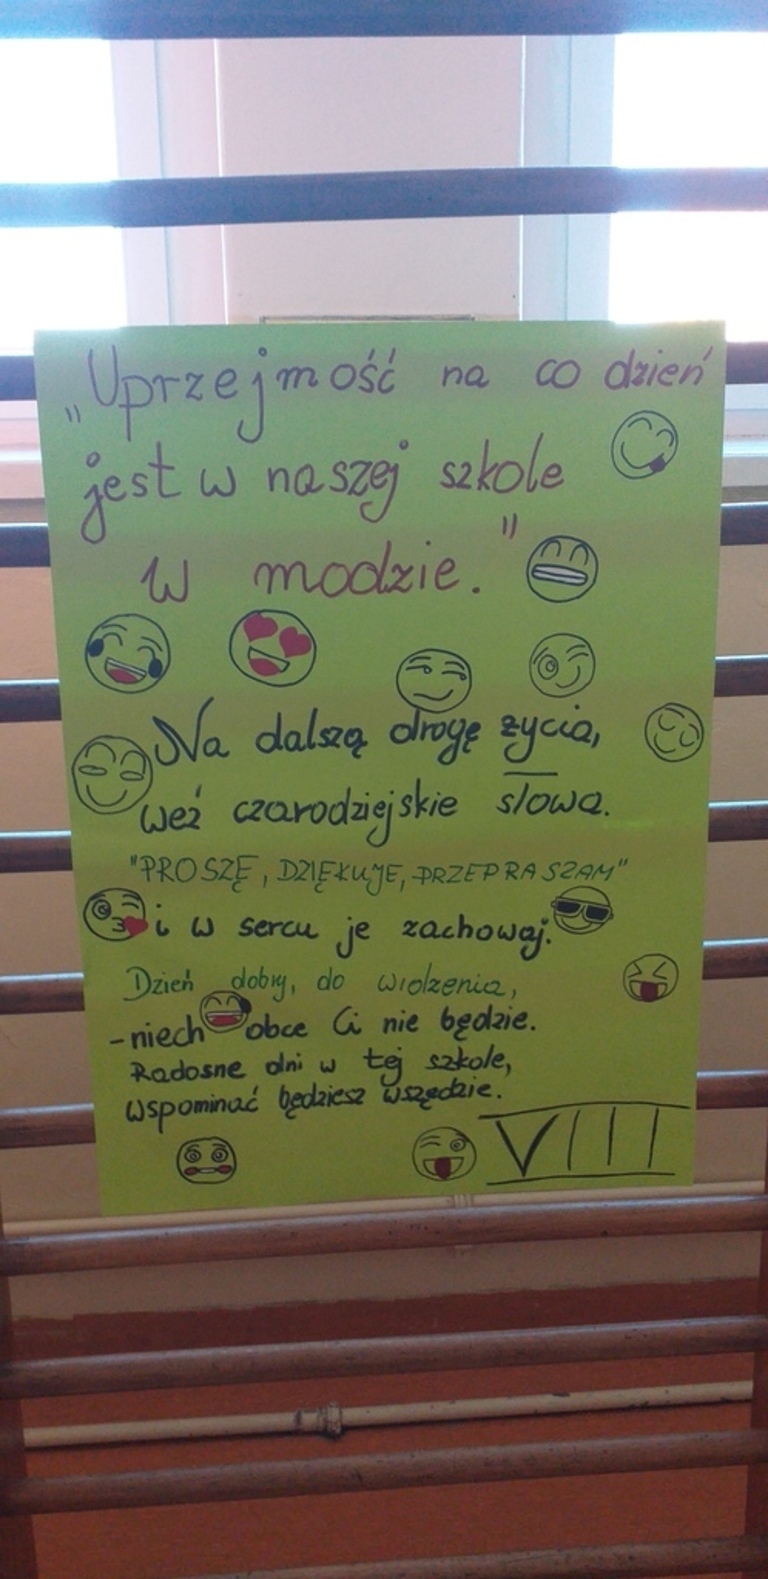 „Uprzejmość na co dzień
jest w naszej szkole
w modzie."
Na dalszą drogę życia,
weź czarodziejskie słowa.
"PROSZĘ, DZIĘKUJE, PRZEPRASZAM"
i w sercu je zachowaj.
Dzień dobry, do widzenia,
-niech obce Ci nie będzie.
Radosne dni w tej szkole,
wspominać będziesz wszędzie.
VIII